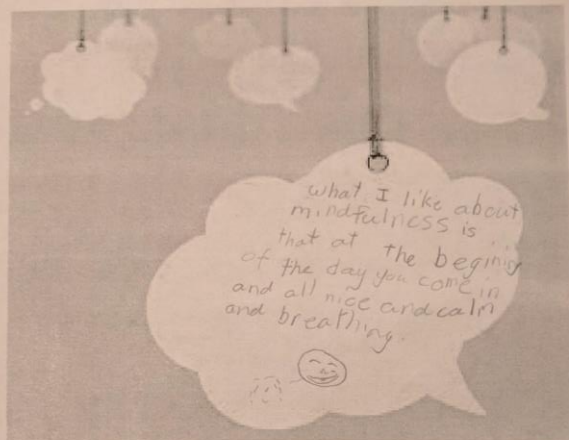 what I like about
mindfulness is
that at the begining
of the day you come in
and all nice and calm
and breathing.